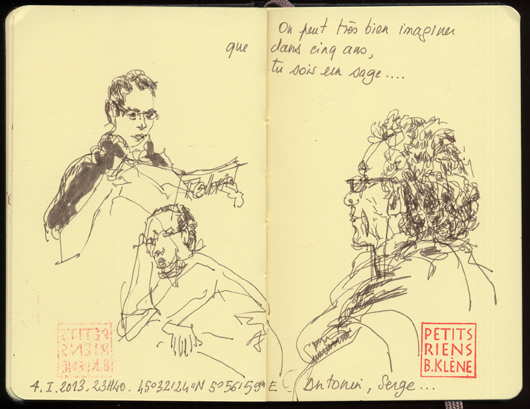 On peut très bien imaginer
que dans cinq ans,
tu sois un sage....
PETITS
RIENS
B.KLÈNE
4.I.2013. 23H40. 45°32'24"N 5°56'59"E. Antonin, Serge...